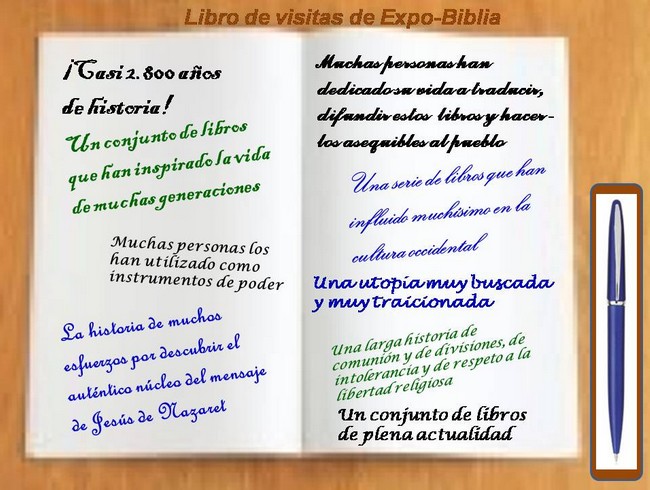 Libro de visitas de Expo-Biblia
¡Casi 2.800 años
de historia!
Un conjunto de libros
que han inspirado la vida
de muchas generaciones
Muchas personas los
han utilizado como
instrumentos de poder
La historia de muchos
esfuerzos por descubrir el
auténtico núcleo del mensaje
de Jesús de Nazaret
Muchas personas han
dedicado su vida a traducir,
difundir estos libros y hacer-
los asequibles al pueblo
Una serie de libros que han
influido muchísimo en la
cultura occidental
Una utopía muy buscada
y muy traicionada
Una larga historia de
comunión y de divisiones, de
intolerancia y de respeto a la
libertad religiosa
Un conjunto de libros
de plena actualidad